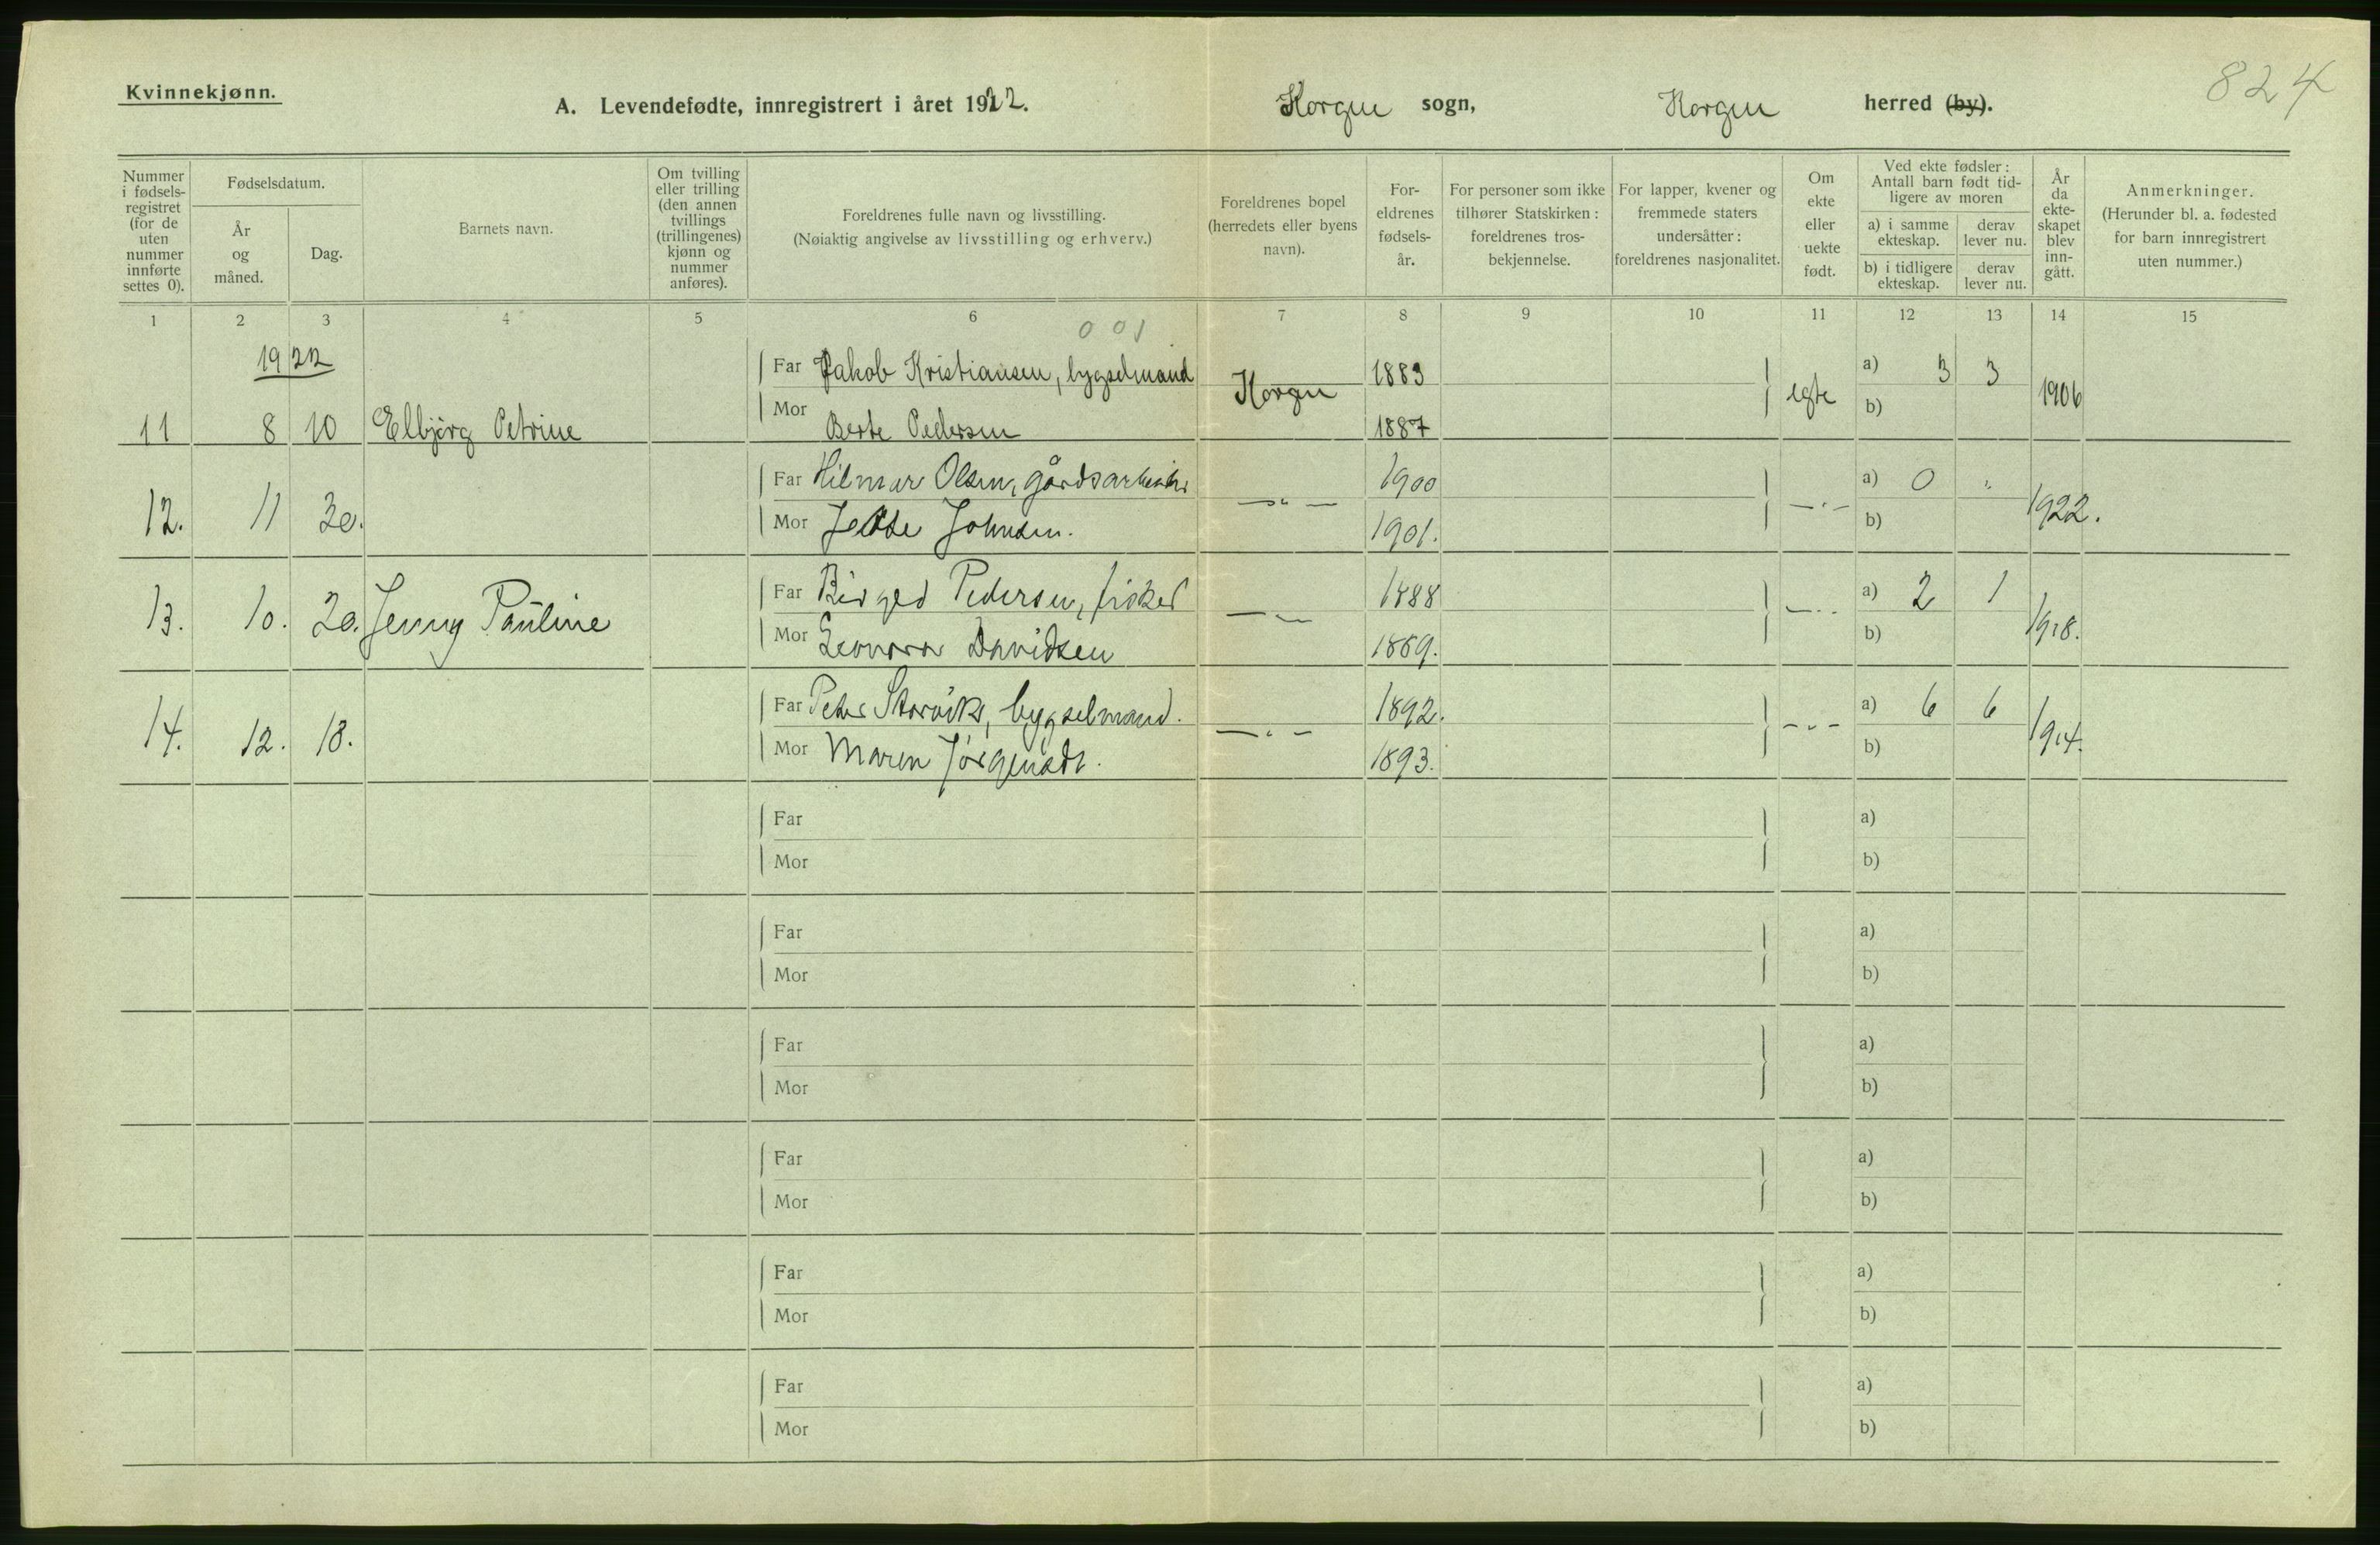 824
Kvinnekjønn.
A. Levendefødte, innregistrert i året 1922. Korgen sogn, Korgen herred (by).
Nummer i fødsels-registret (for de uten nummer innførte settes 0).
Fødselsdatum.
År og måned.
Dag.
Barnets navn.
Om tvilling eller trilling (den annen tvillings (trillingenes) kjønn og nummer anføres).
Foreldrenes fulle navn og livsstilling.
(Nøiaktig angivelse av livsstilling og erhverv.)
Foreldrenes bopel (herredets eller byens navn).
For-eldrenes fødsels-år.
For personer som ikke tilhører Statskirken: foreldrenes tros-bekjennelse.
For lapper, kvener og fremmede staters undersåtter: foreldrenes nasjonalitet.
Om ekte eller uekte født.
Ved ekte fødsler: Antall barn født tid-ligere av moren
a) i samme ekteskap.
derav lever nu.
b) i tidligere ekteskap.
derav lever nu.
År da ekte-skapet blev inn-gått.
Anmerkninger.
(Herunder bl. a. fødested for barn innregistrert uten nummer.)
1 2 3 4 5 6 7 8 9 10 11 12 13 14 15
001
1922
Far Jakob Kristiansen, bygselmand Korgen 1883 egte a) 3 3 1906
11 8 10 Elbjörg Petrine Mor Berte Pedersen 1887 b)
Far Hilmar Olsen, gårdsarbeider —"— 1900 —"— a) 0 " 1922.
12. 11 30. Mor Jette Johnsen. 1901. b)
Far Birger Pedersen, fisker —"— 1888 —"— a) 2 1 1918.
13. 10. 20. Jenny Pauline Mor Leonora Davidsen 1889. b)
Far Peter Storvik, bygselmand. —"— 1892. —"— a) 6 6 1914.
14. 12. 18. Mor Maren Jörgensdt. 1893. b)
Far a)
Mor b)
Far a)
Mor b)
Far a)
Mor b)
Far a)
Mor b)
Far a)
Mor b)
Far a)
Mor b)